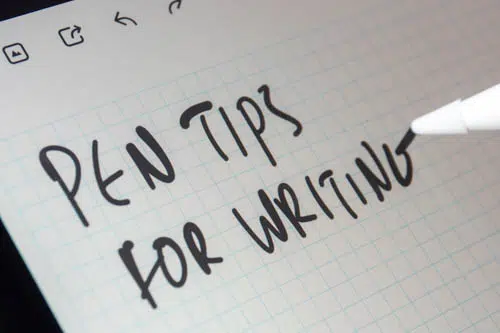 PEN TIPS
FOR WRITING